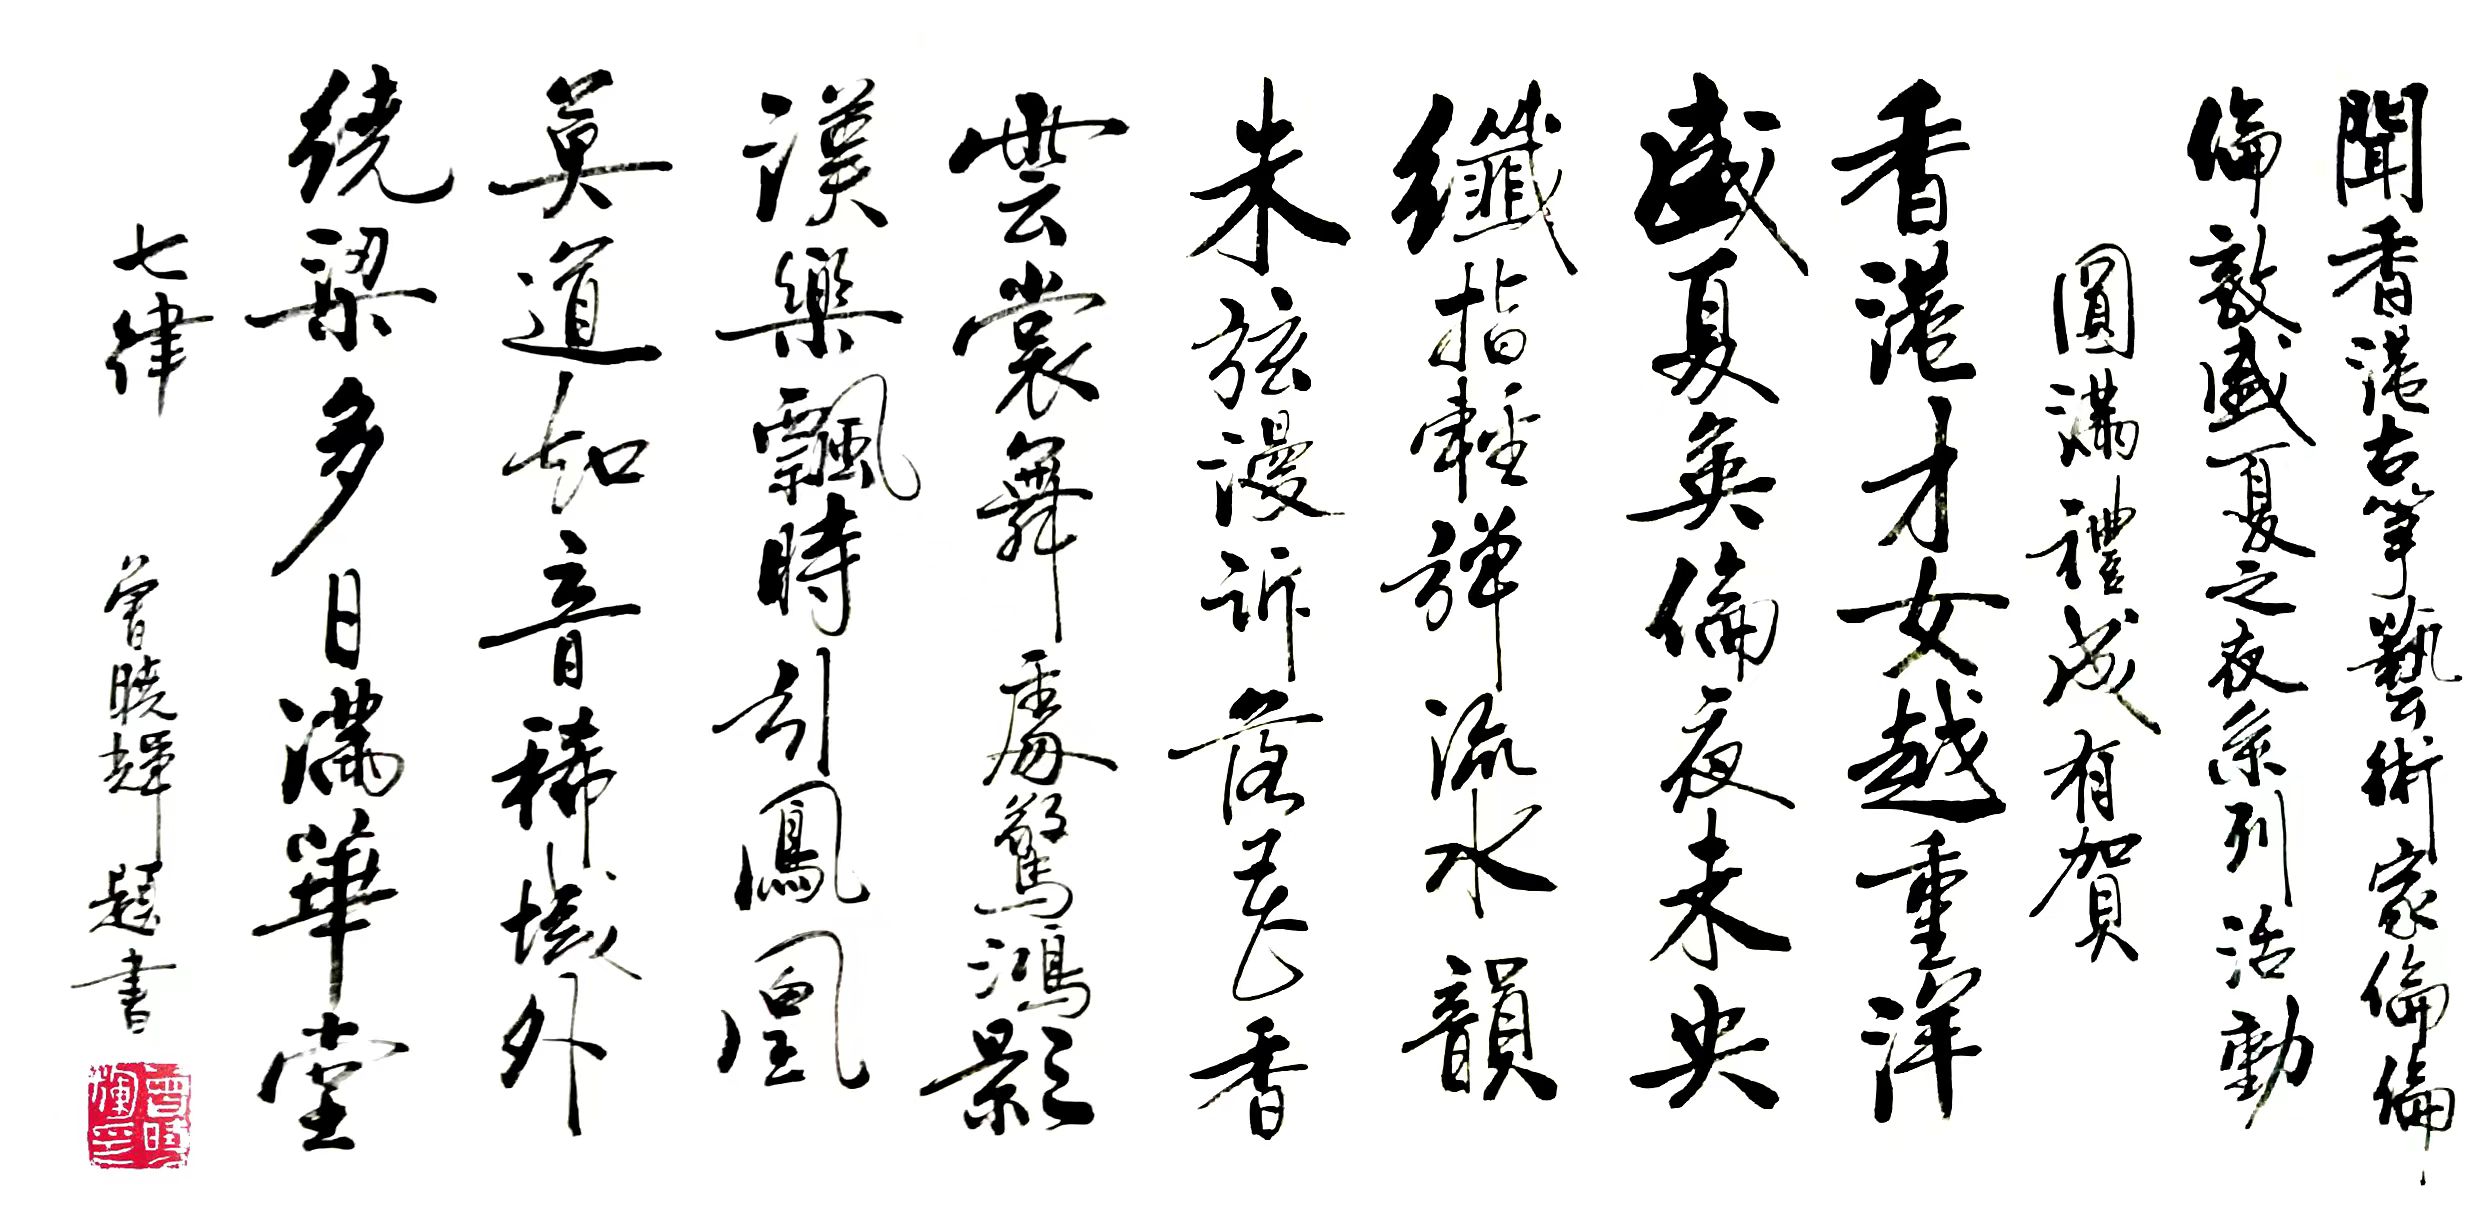 聞香港古箏藝術家倫倫
倫敦盛夏之夜系列活動
圓滿禮成有賀
香港才女越重洋
盛夏英倫夜未央
纖指輕彈流水韻
朱弦漫訴落花香
雲裳舞處驚鴻影
漢樂飄時引鳳凰
莫道知音稀域外
繞梁多日滿華堂
七律 曾曉輝題書